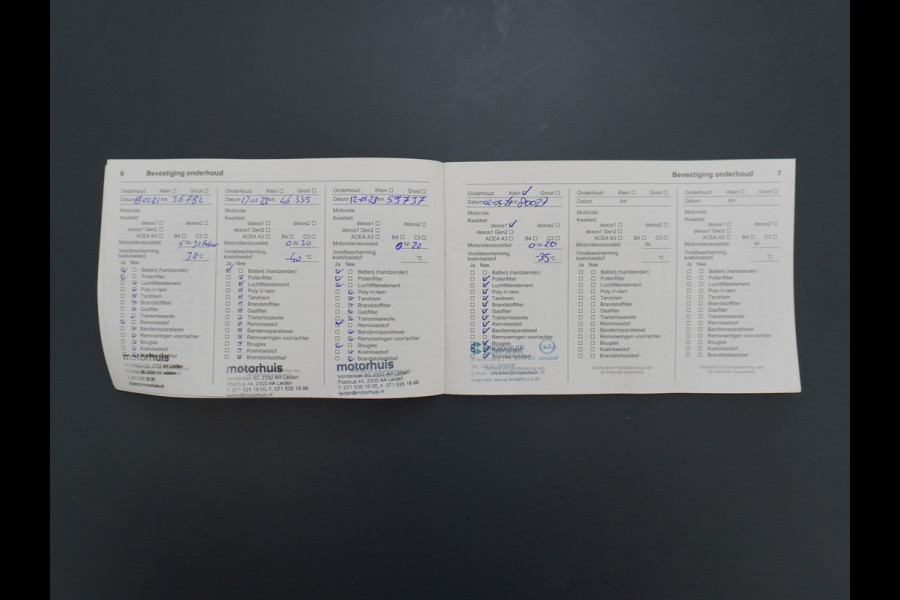 6 Bevestiging onderhoud
Onderhoud: Klein Groot
Datum km 36782
Motorolie
Kwaliteit:
dexos1 dexos2
dexos1 Gen2
ACEA A3 B4 C3
Motorolieviscositeit: 5W-30
Vorstbescherming koelvloeistof -38 °C
Ja Nee
Batterij (handzender)
Pollenfilter
Luchtfilterelement
Poly-V-riem
Tandriem
Brandstoffilter
Gasfilter
Transmissieolie
Remvloeistof
Bandenreparatieset
Remvoeringen voor/achter
Bougies
Koelvloeistof
motorhuis
Onderhoud: Klein Groot
Datum 17-01-22 km 46335
Motorolie
Kwaliteit:
dexos1 dexos2
dexos1 Gen2
ACEA A3 B4 C3
Motorolieviscositeit: 0W30
Vorstbescherming koelvloeistof -40 °C
Ja Nee
Batterij (handzender)
Pollenfilter
Luchtfilterelement
Poly-V-riem
Tandriem
Brandstoffilter
Gasfilter
Transmissieolie
Remvloeistof
Bandenreparatieset
Remvoeringen voor/achter
Bougies
Koelvloeistof
Brandstoffilter
motorhuis
Vondellaan 80, 2332 AH Leiden
Postbus 44, 2300 AA Leiden
T. 071 535 18 00, F. 071 535 18 98
leiden@motorhuis.nl
Onderhoud: Klein Groot
Datum 12-01-23 km 59737
Motorolie
Kwaliteit:
dexos1 dexos2
dexos1 Gen2
ACEA A3 B4 C3
Motorolieviscositeit: 0W-20
Vorstbescherming koelvloeistof °C
Ja Nee
Batterij (handzender)
Pollenfilter
Luchtfilterelement
Poly-V-riem
Tandriem
Brandstoffilter
Gasfilter
Transmissieolie
Remvloeistof
Bandenreparatieset
Remvoeringen voor/achter
Bougies
Koelvloeistof
motorhuis
Vondellaan 80, 2332 AH Leiden
Postbus 44, 2300 AA Leiden
T. 071 535 18 00, F. 071 535 18 98
leiden@motorhuis.nl
Bevestiging onderhoud 7
Onderhoud: Klein Groot
Datum 80027
Motorolie
Kwaliteit:
dexos1 dexos2
dexos1 Gen2
ACEA A3 B4 C3
Motorolieviscositeit: 0W-20
Vorstbescherming koelvloeistof -35 °C
Ja Nee
Batterij (handzender)
Pollenfilter
Luchtfilterelement
Poly-V-riem
Tandriem
Brandstoffilter
Gasfilter
Transmissieolie
Remvloeistof
Bandenreparatieset
Remvoeringen voor/achter
Bougies
Onderhoud: Klein Groot
Datum km
Motorolie
Kwaliteit:
dexos1 dexos2
dexos1 Gen2
ACEA A3 B4 C3
Motorolieviscositeit: W-
Vorstbescherming koelvloeistof °C
Ja Nee
Batterij (handzender)
Pollenfilter
Luchtfilterelement
Poly-V-riem
Tandriem
Brandstoffilter
Gasfilter
Transmissieolie
Remvloeistof
Bandenreparatieset
Remvoeringen voor/achter
Bougies
Koelvloeistof
Stempel en handtekening van
Onderhoud: Klein Groot
Datum km
Motorolie
Kwaliteit:
dexos1 dexos2
dexos1 Gen2
ACEA A3 B4 C3
Motorolieviscositeit: W-
Vorstbescherming koelvloeistof °C
Ja Nee
Batterij (handzender)
Pollenfilter
Luchtfilterelement
Poly-V-riem
Tandriem
Brandstoffilter
Gasfilter
Transmissieolie
Remvloeistof
Bandenreparatieset
Remvoeringen voor/achter
Bougies
Koelvloeistof
Stempel en handtekening van